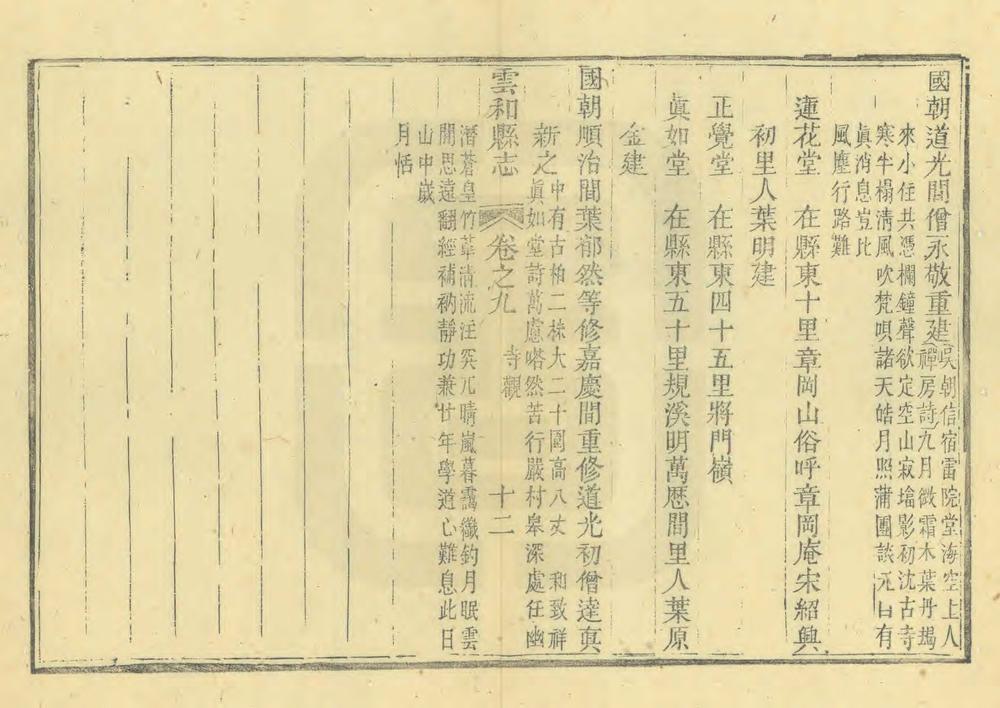 國朝道光間僧永敬重建吳朝信宿雷院堂海空上人
禪房詩九月微霜木葉丹
來小住共憑欄鐘聲欲定空山寂墖影初沈古寺
寒半榻清風吹梵唄諸天皓月照蒲團談元日有
眞消息豈比
風塵行路難
蓮花堂 在縣東十里章岡山俗呼章岡庵宋紹興
初里人葉明建
正覺堂 在縣東四十五里將門嶺
眞如堂 在縣東五十里規溪明萬歷間里人葉原
金建
國朝順治間葉郁然等修嘉慶間重修道光初僧達眞
新之中有古柏二株大二十圍高八丈 和致祥
眞如堂詩萬慮嗒然苦行嚴村皋深處任幽
雲和縣志 卷之九 寺觀 十二
潛蒼皇竹葦清流注突兀晴嵐暮靄纖釣月眠雲
開思遠翻經補衲靜功兼廿年學道心難息此日
山中歲
月恬